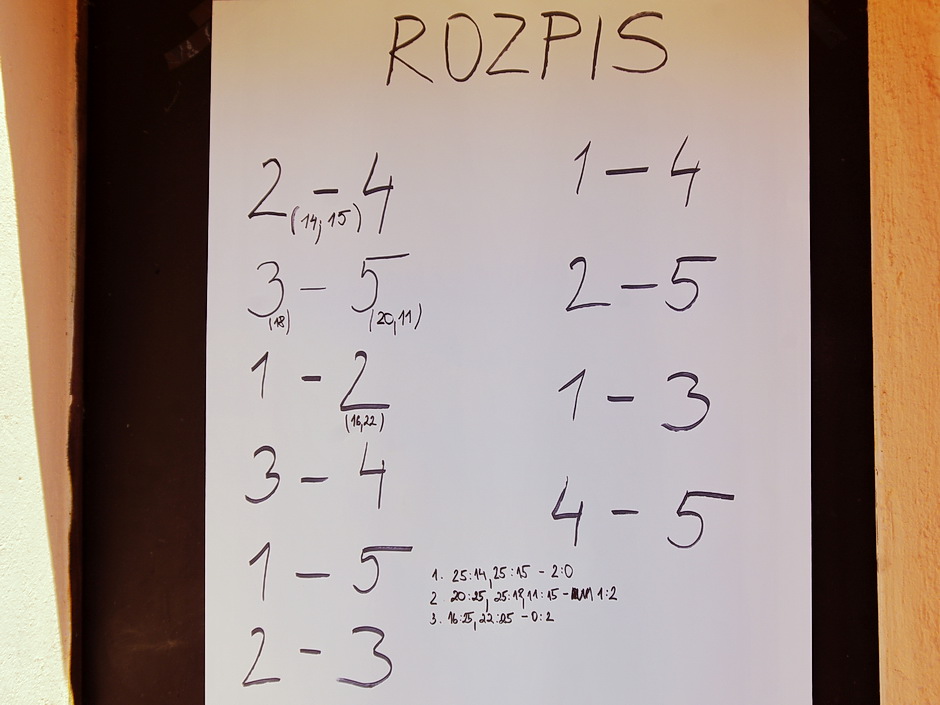 ROZPIS
2 - 4
(14, 15)
3 - 5
(18) (20, 11)
1 - 2
(16, 22)
3 - 4
1 - 5
2 - 3
1 - 4
2 - 5
1 - 3
4 - 5
1. 25:14, 25:15 - 2:0
2. 20:25, 25:18, 11:15 - 1:2
3. 16:25, 22:25 - 0:2